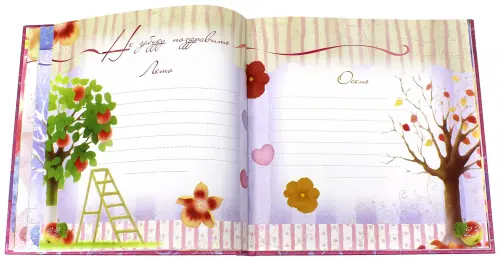 Не забудь поздравить
Лето
Осень
22
23